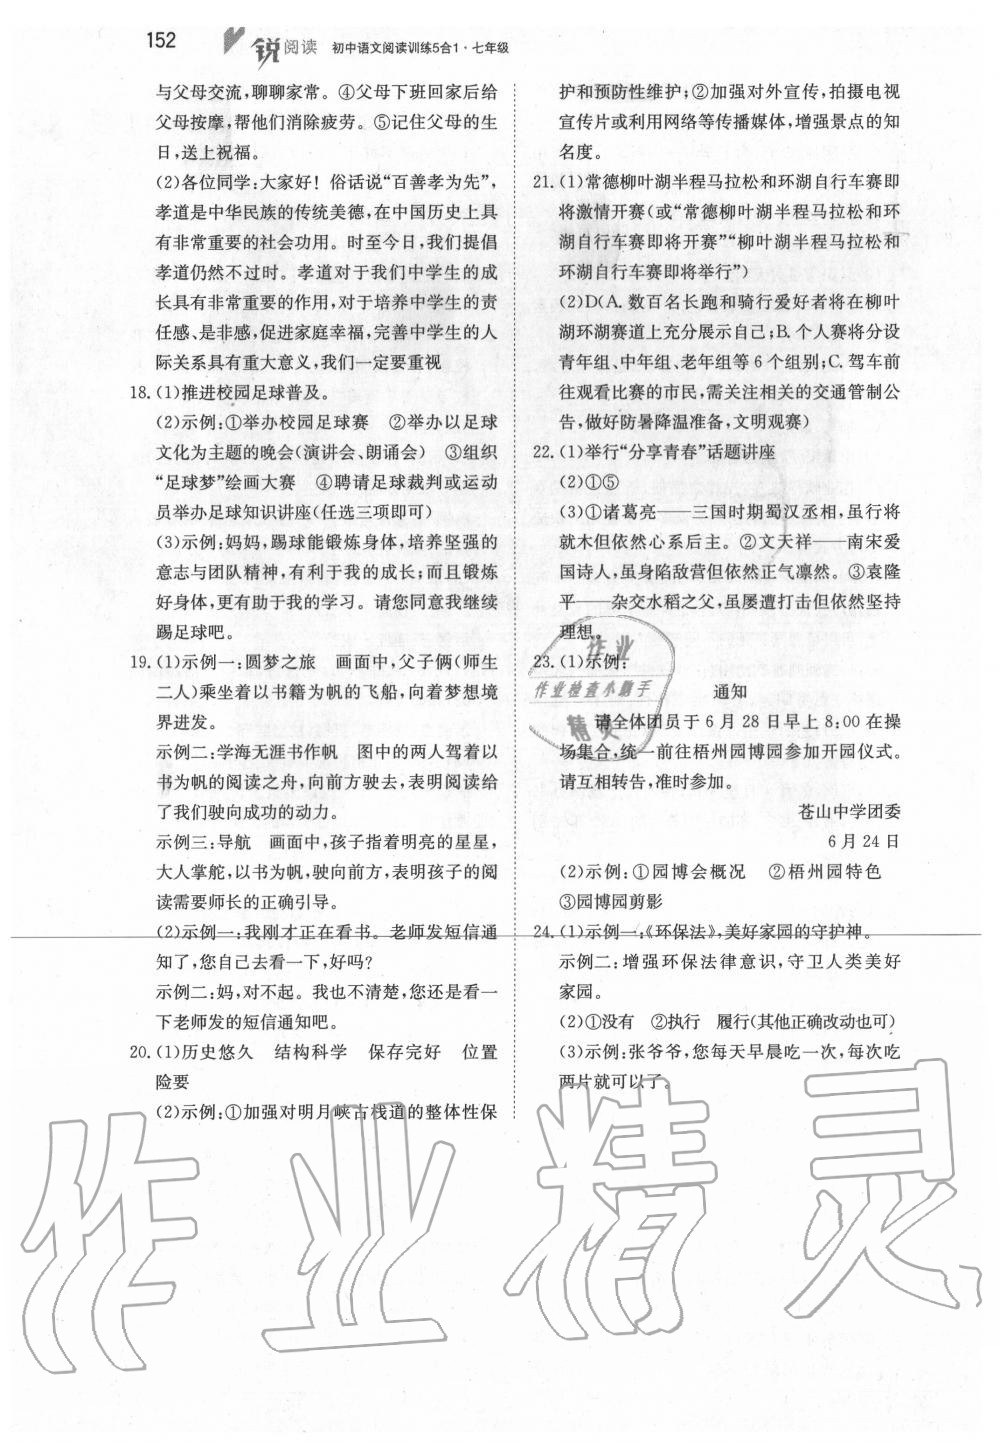 152 锐阅读 初中语文阅读训练5合1·七年级
与父母交流,聊聊家常。④父母下班回家后给
父母按摩,帮他们消除疲劳。⑤记住父母的生
日,送上祝福。
(2)各位同学:大家好！俗话说“百善孝为先”,
孝道是中华民族的传统美德,在中国历史上具
有非常重要的社会功用。时至今日,我们提倡
孝道仍然不过时。孝道对于我们中学生的成
长具有非常重要的作用,对于培养中学生的责
任感、是非感,促进家庭幸福,完善中学生的人
际关系具有重大意义,我们一定要重视
18.(1)推进校园足球普及。
(2)示例:①举办校园足球赛 ②举办以足球
文化为主题的晚会(演讲会、朗诵会) ③组织
“足球梦”绘画大赛 ④聘请足球裁判或运动
员举办足球知识讲座(任选三项即可)
(3)示例:妈妈,踢球能锻炼身体,培养坚强的
意志与团队精神,有利于我的成长;而且锻炼
好身体,更有助于我的学习。请您同意我继续
踢足球吧。
19.(1)示例一:圆梦之旅 画面中,父子俩(师生
二人)乘坐着以书籍为帆的飞船,向着梦想境
界进发。
示例二:学海无涯书作帆 图中的两人驾着以
书为帆的阅读之舟,向前方驶去,表明阅读给
了我们驶向成功的动力。
示例三:导航 画面中,孩子指着明亮的星星,
大人掌舵,以书为帆,驶向前方,表明孩子的阅
读需要师长的正确引导。
(2)示例一:我刚才正在看书。老师发短信通
知了,您自己去看一下,好吗?
示例二:妈,对不起。我也不清楚,您还是看一
下老师发的短信通知吧。
20.(1)历史悠久 结构科学 保存完好 位置
险要
(2)示例:①加强对明月峡古栈道的整体性保
护和预防性维护;②加强对外宣传,拍摄电视
宣传片或利用网络等传播媒体,增强景点的知
名度。
21.(1)常德柳叶湖半程马拉松和环湖自行车赛即
将激情开赛(或“常德柳叶湖半程马拉松和环
湖自行车赛即将开赛”“柳叶湖半程马拉松和
环湖自行车赛即将举行”)
(2)D(A.数百名长跑和骑行爱好者将在柳叶
湖环湖赛道上充分展示自己;B.个人赛将分设
青年组、中年组、老年组等6个组别;C.驾车前
往观看比赛的市民,需关注相关的交通管制公
告,做好防暑降温准备,文明观赛)
22.(1)举行“分享青春”话题讲座
(2)①⑤
(3)①诸葛亮——三国时期蜀汉丞相,虽行将
就木但依然心系后主。②文天祥——南宋爱
国诗人,虽身陷敌营但依然正气凛然。③袁隆
平——杂交水稻之父,虽屡遭打击但依然坚持
理想。
23.(1)示例:
通知
请全体团员于6月28日早上8:00在操
场集合,统一前往梧州园博园参加开园仪式。
请互相转告,准时参加。
苍山中学团委
6月24日
(2)示例:①园博会概况 ②梧州园特色
③园博园剪影
24.(1)示例一:《环保法》,美好家园的守护神。
示例二:增强环保法律意识,守卫人类美好
家园。
(2)①没有 ②执行 履行(其他正确改动也可)
(3)示例:张爷爷,您每天早晨吃一次,每次吃
两片就可以了。
作业
作业检查小助手
精灵
作业精灵